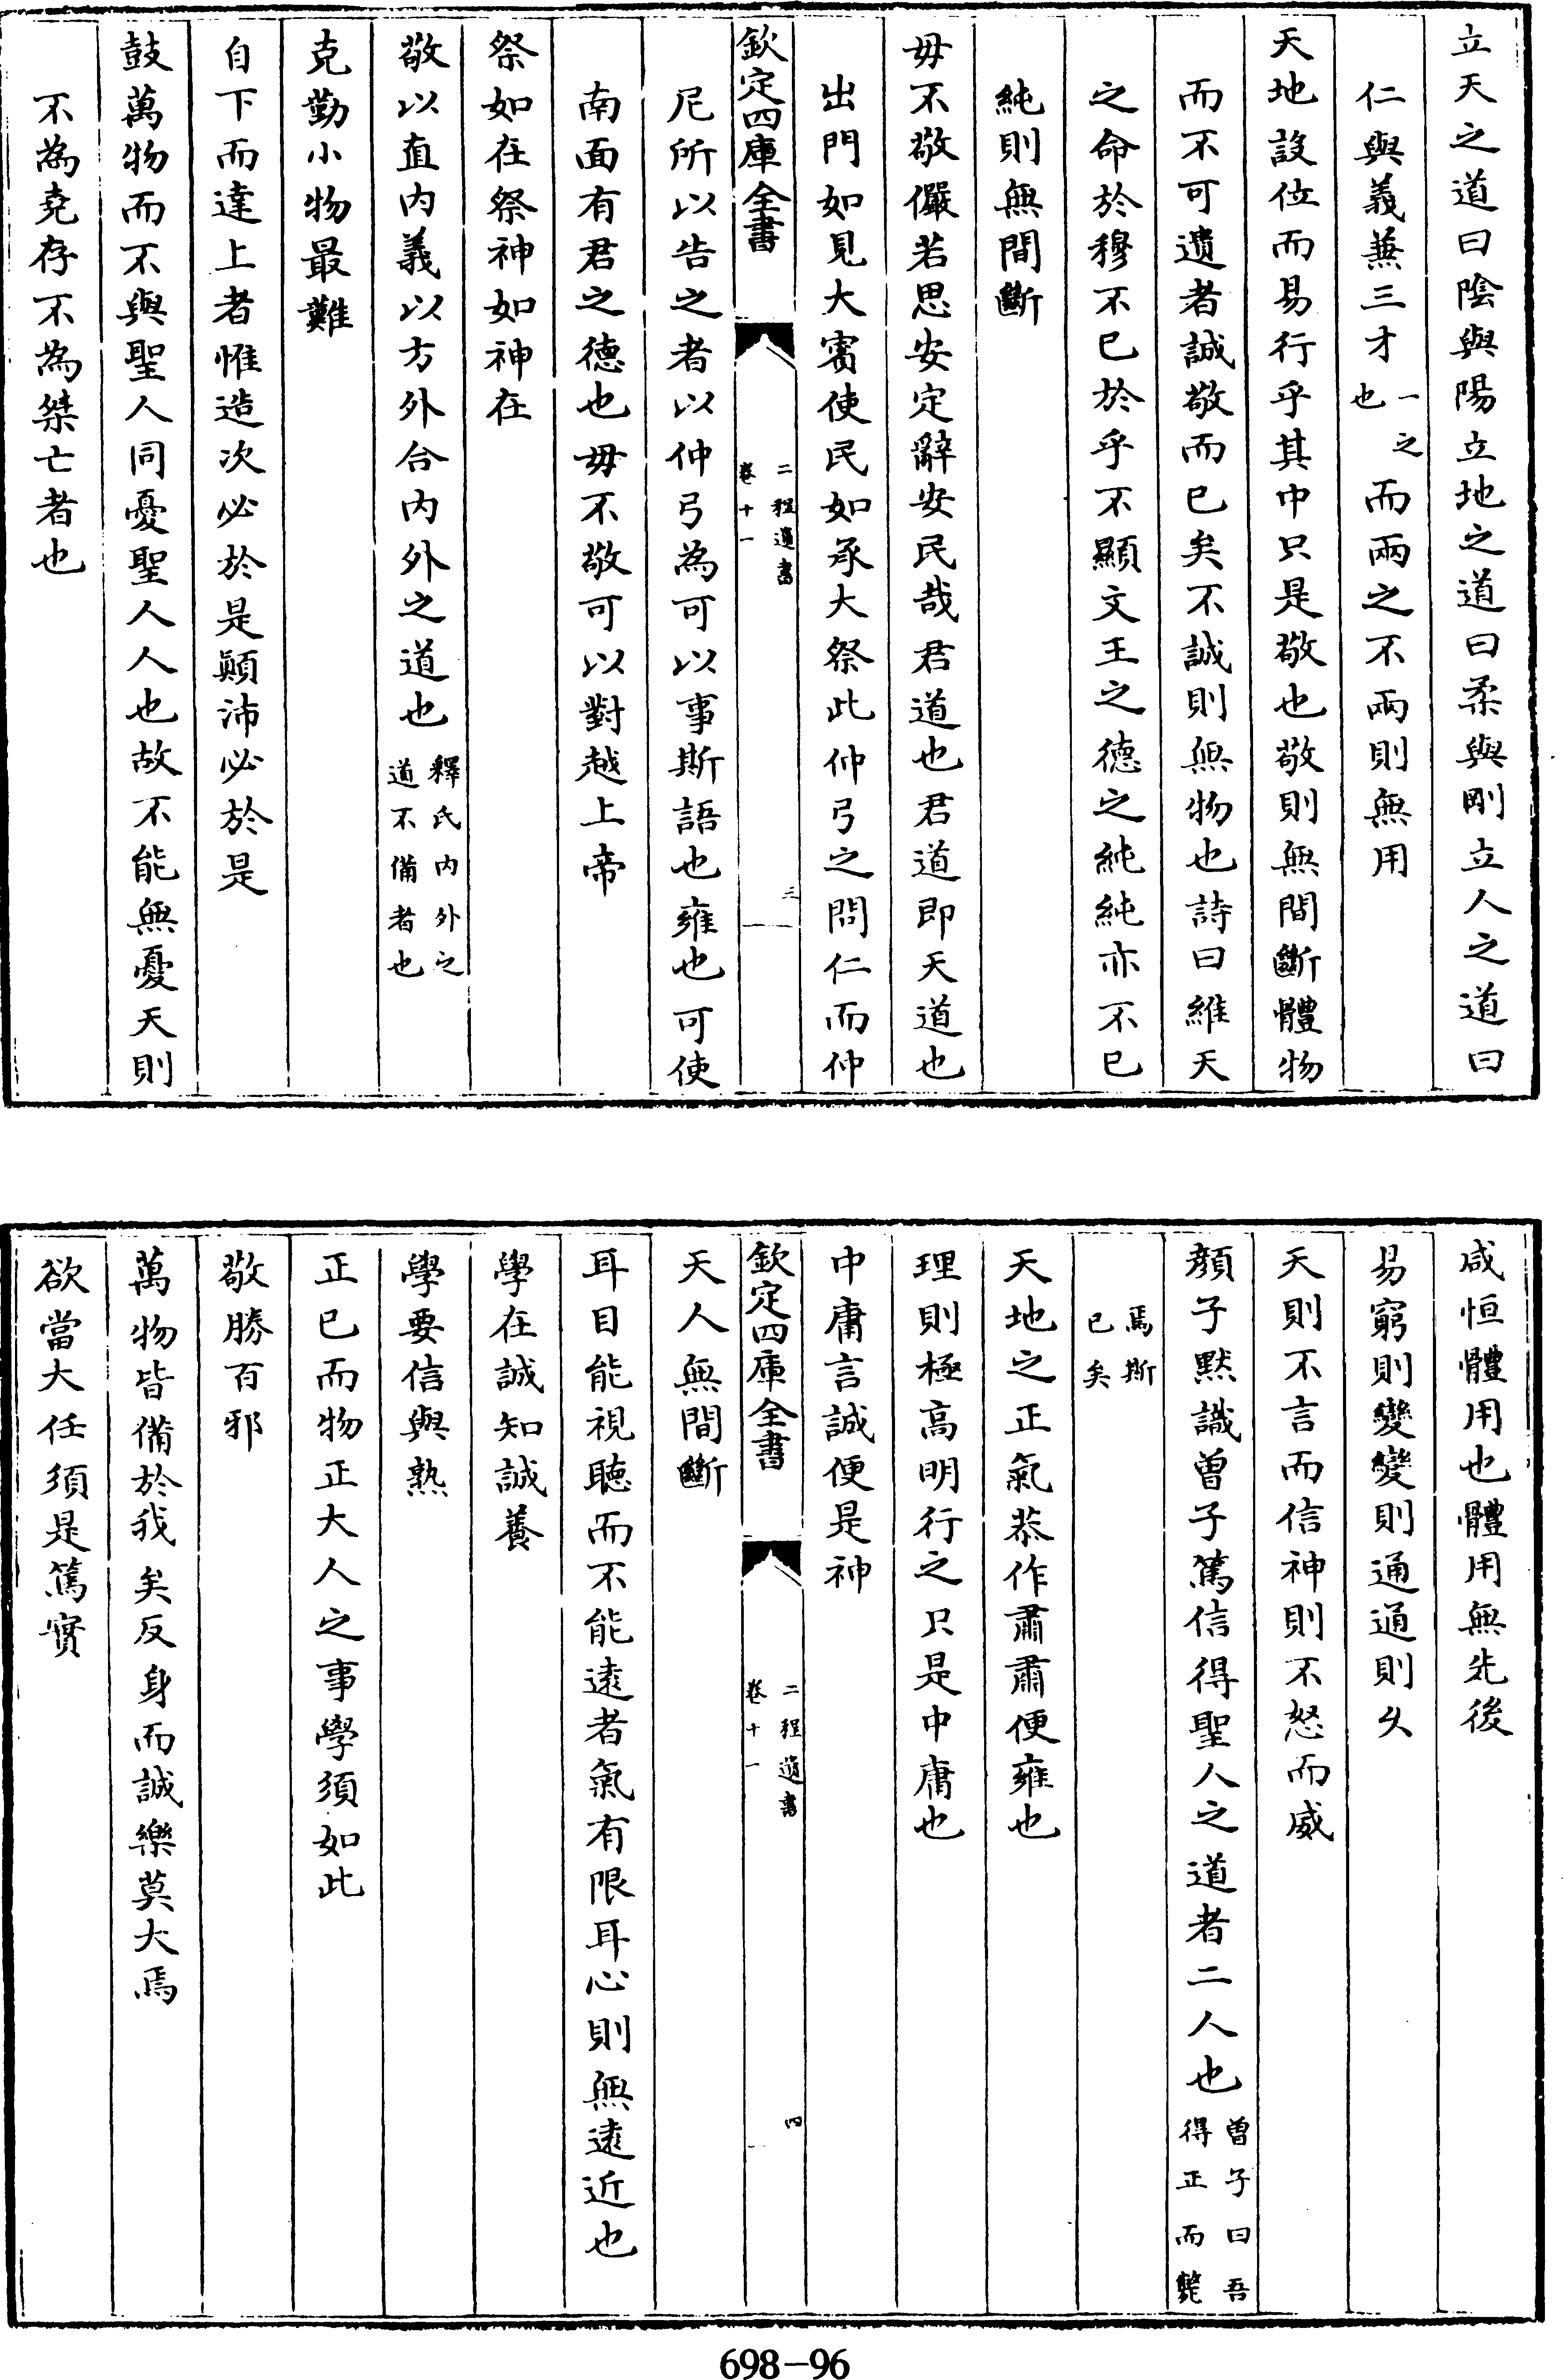 立天之道曰陰與陽立地之道曰柔與剛立人之道曰
仁與義兼三才一之也而兩之不兩則無用
天地設位而易行乎其中只是敬也敬則無間斷體物
而不可遺者誠敬而已矣不誠則無物也詩曰維天
之命於穆不已於乎不顯文王之德之純純亦不已
純則無間斷
毋不敬儼若思安定辭安民哉君道也君道即天道也
出門如見大賓使民如承大祭此仲弓之問仁而仲
欽定四庫全書
二程遺書
卷十一
三
尼所以告之者以仲弓為可以事斯語也雍也可使
南面有君之德也毋不敬可以對越上帝
祭如在祭神如神在
敬以直內義以方外合內外之道也釋氏內外之道不備者也
克勤小物最難
自下而達上者惟造次必於是顛沛必於是
鼓萬物而不與聖人同憂聖人人也故不能無憂天則
不為堯存不為桀亡者也
咸恒體用也體用無先後
易窮則變變則通通則久
天則不言而信神則不怒而威
顏子默識曾子篤信得聖人之道者二人也曾子曰吾得正而斃
焉斯已矣
天地之正氣恭作肅肅便雍也
理則極高明行之只是中庸也
中庸言誠便是神
欽定四庫全書
二程遺書
卷十一
四
天人無間斷
耳目能視聽而不能遠者氣有限耳心則無遠近也
學在誠知誠養
學要信與熟
正已而物正大人之事學須如此
敬勝百邪
萬物皆備於我矣反身而誠樂莫大焉
欲當大任須是篤實
698-96